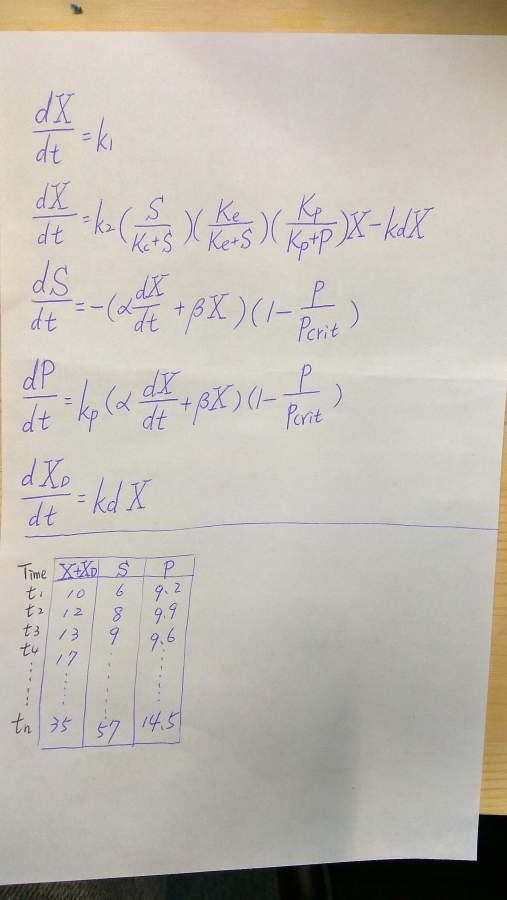 dX/dt = k₁
dX/dt = k₂(S/(Kc+S))(Ke/(Ke+S))(Kp/(Kp+P))X - kdX
dS/dt = -(α dX/dt + βX)(1 - P/Pcrit)
dP/dt = kp(α dX/dt + βX)(1 - P/Pcrit)
dX_D/dt = kd X
Time X+X_D S P
t₁ 10 6 9.2
t₂ 12 8 9.9
t₃ 13 9 9.6
t₄ 17
tn 35 57 14.5